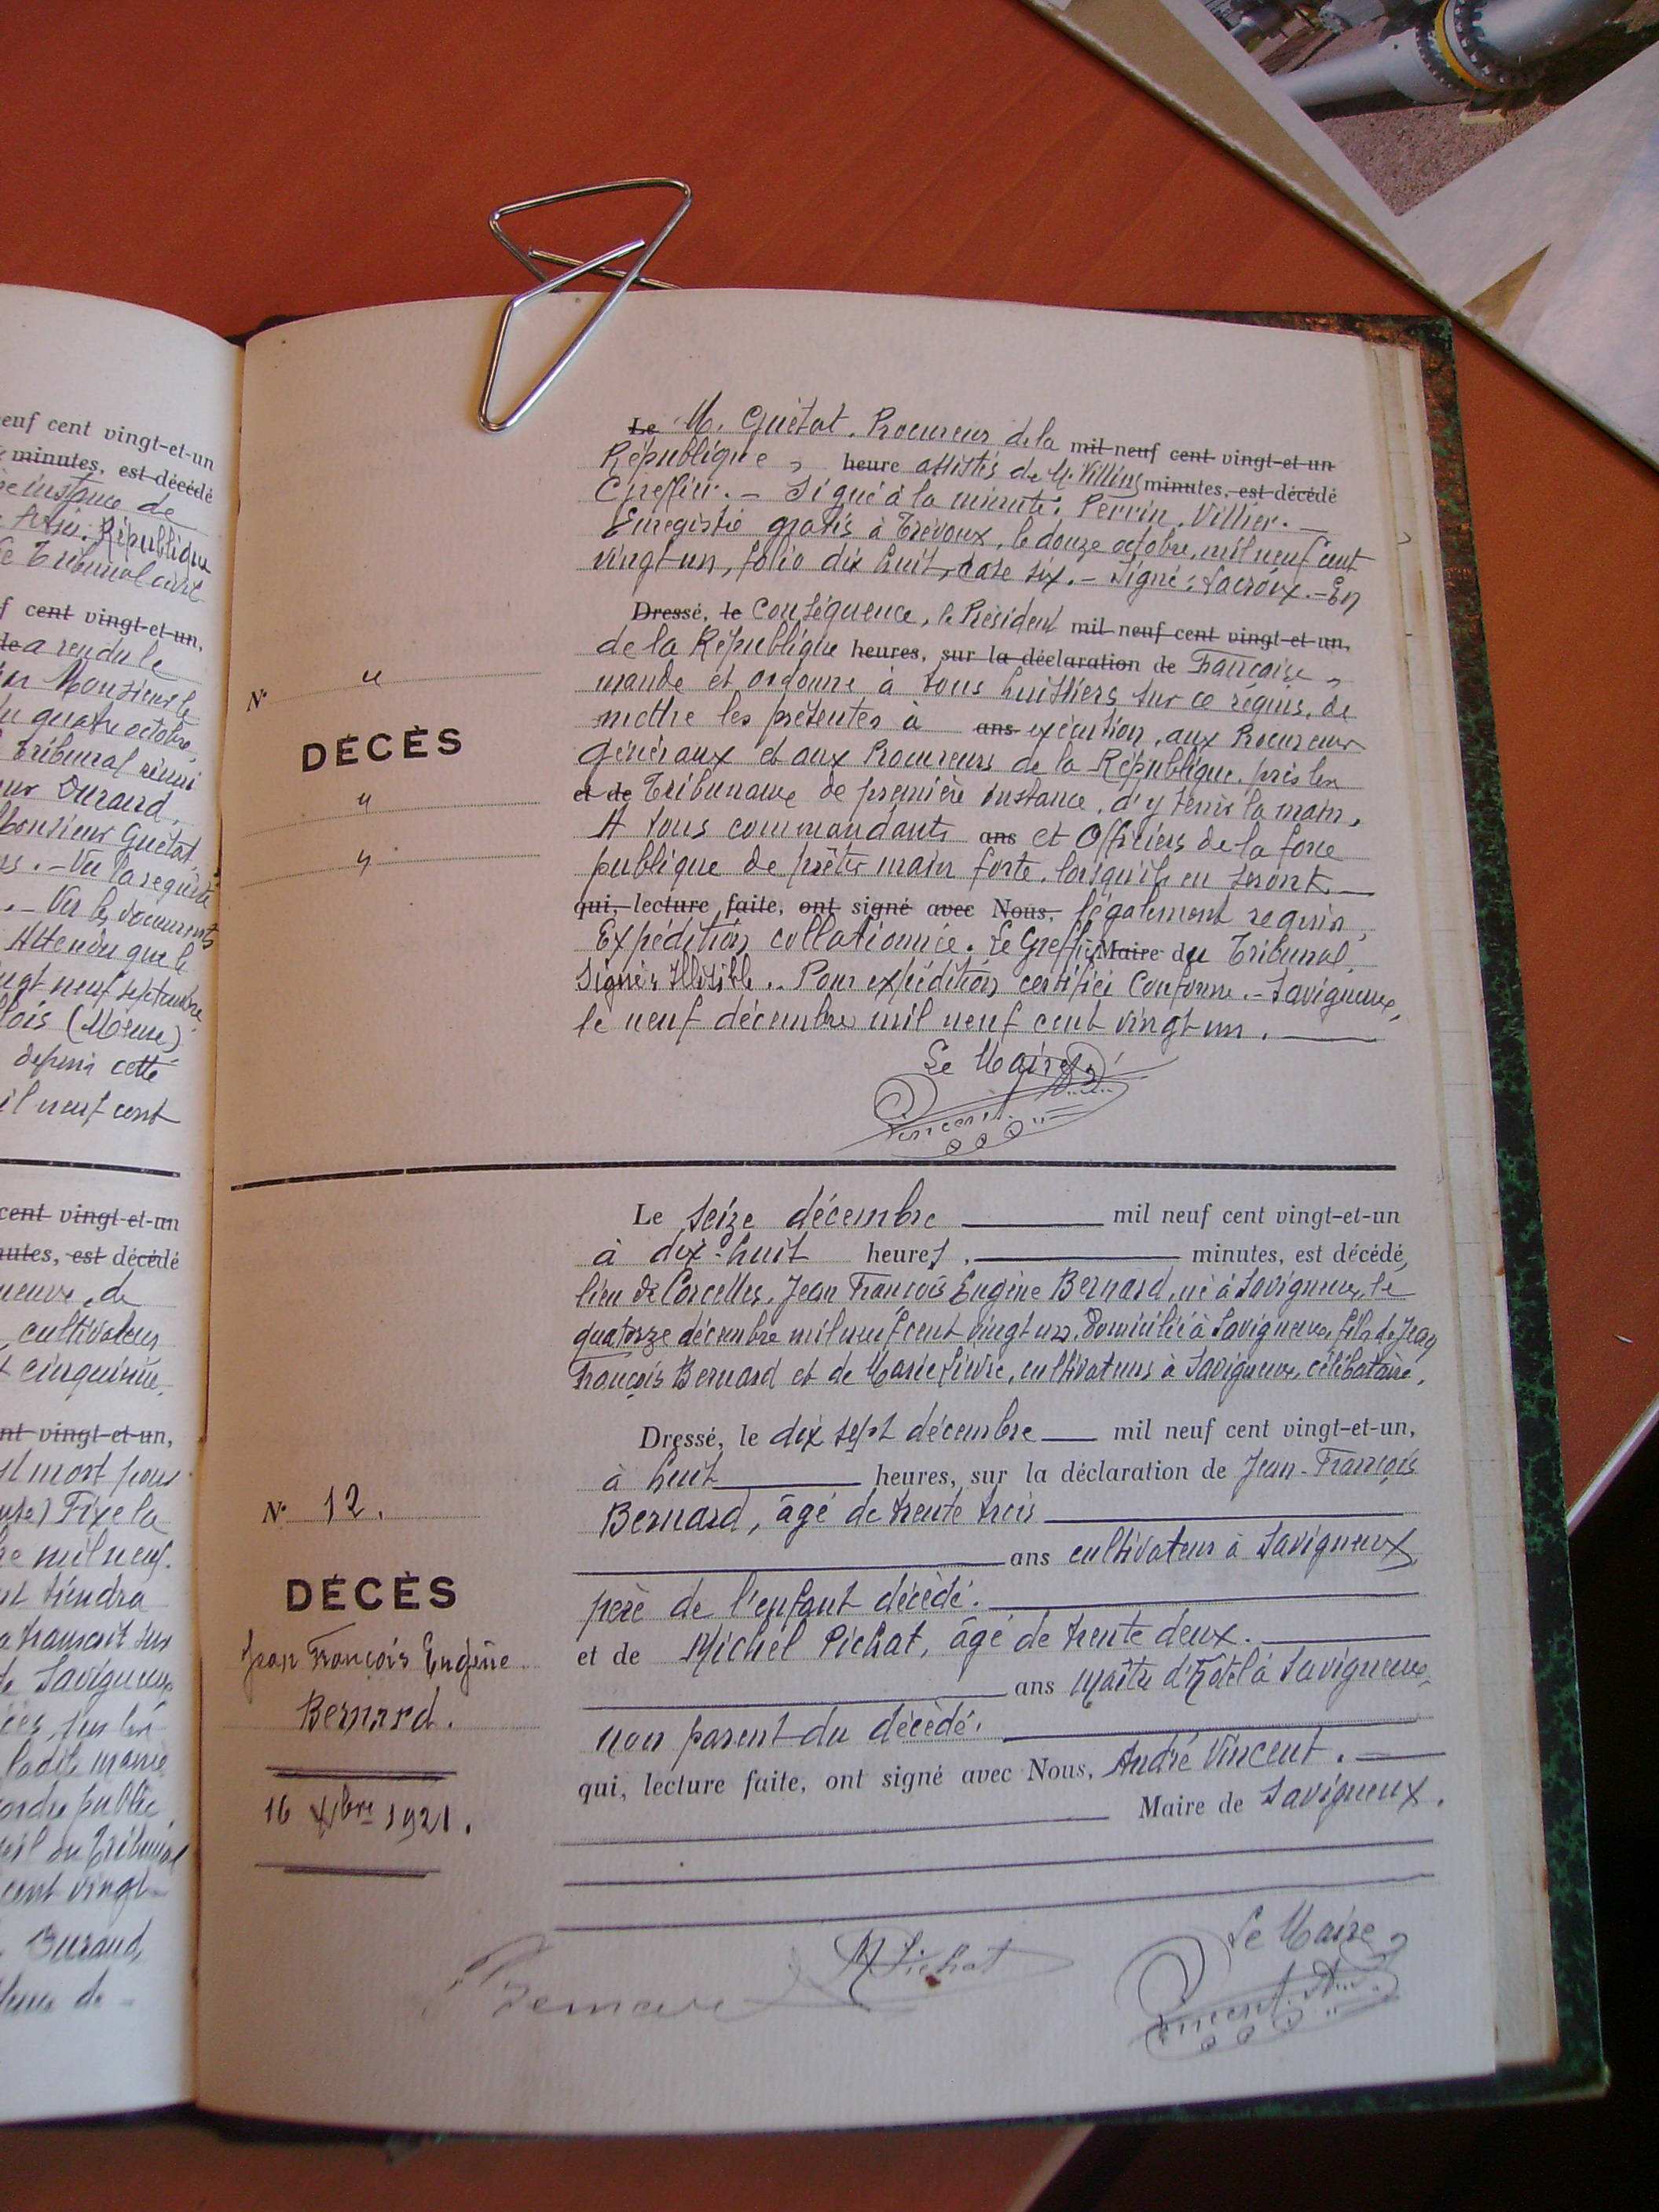 neuf cent vingt-et-un
minutes, est décédé
instance de
République
Tribunal civil
cent vingt-et-un,
a rendu le
Monsieur le
quatre octobre
Tribunal réuni
Durand,
Monsieur Guétat,
. - Vu la requête
. - Vu les documents
Attendu que le
vingt neuf septembre
(Meuse)
depuis cette
mil neuf cent
cent vingt-et-un
minutes, est décédé
de
cultivateur
cinquième.
vingt-et-un,
mort pour
Fixe la
mil neuf.
tiendra
transcrit sur
de Savigneux,
ladite mairie
ordre public
du Tribunal
cent vingt-
Durand,
de -
Le M. Guétat, Procureur de la mil neuf cent vingt-et-un
République, heure assistés de M. Villier minutes, est décédé
Greffier. - Signé à la minute: Perrin, Villier. -
Enregistré gratis à Trévoux, le douze octobre, mil neuf cent
vingt un, folio dix huit, case six. - Signé: Lacroix. - En
Dressé, le conséquence, le Président mil neuf cent vingt-et-un,
de la République heures, sur la déclaration de Française,
mande et ordonne à tous huissiers sur ce réquis, de
mettre les présentes à ans exécution, aux Procureurs
généraux et aux Procureurs de la République, près les
et de Tribunaux de première instance, d'y tenir la main,
A tous commandants ans et Officiers de la force
publique de prêter main forte, lorsqu'ils en seront
qui, lecture faite, ont signé avec Nous, légalement requis,
Expédition collationnée. Le Greffier Maire du Tribunal,
Signé: Illisible.. Pour expédition certifiée Conforme. - Savigneux,
le neuf décembre mil neuf cent vingt un.
Le Maire,
Vincent
N° "
DÉCÈS
"
"
Le seize décembre mil neuf cent vingt-et-un
à dix-huit heures, minutes, est décédé,
lieu de Corcelles, Jean François Eugène Bernard, né à Savigneux, le
quatorze décembre mil neuf cent vingt un, domicilié à Savigneux, fils de Jean
François Bernard et de Marie Lièvre, cultivateurs à Savigneux, célibataire.
Dressé, le dix sept décembre mil neuf cent vingt-et-un,
à huit heures, sur la déclaration de Jean-François
Bernard, âgé de trente trois
ans cultivateur à Savigneux,
père de l'enfant décédé.
et de Michel Pichat, âgé de trente deux.
ans Maître d'Hôtel à Savigneux,
non parent du décédé.
qui, lecture faite, ont signé avec Nous, André Vincent.
Maire de Savigneux.
N° 12.
DÉCÈS
Jean François Eugène
Bernard.
16 Xbre 1921.
Bernard
M Pichat
Le Maire,
Vincent. A